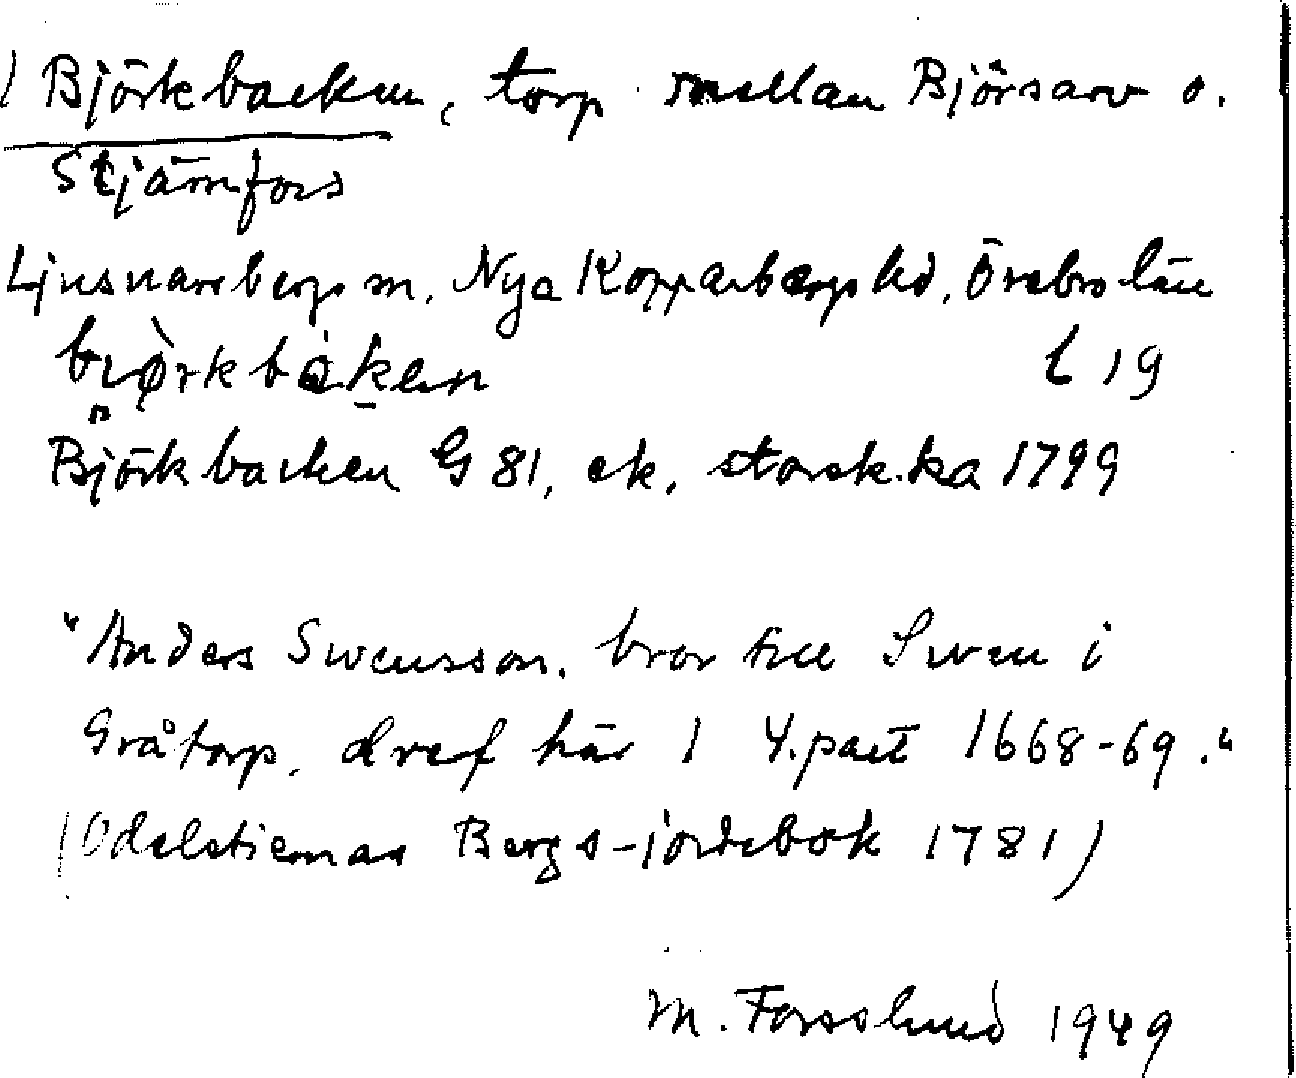 Björkbacken, torp mellan Björsarv o.
Stjärnfors
Ljusnarsbergs sn, Nya Kopparbergs hd, Örebro län
bɩørkbakən l 19
Björkbacken G 81, ek, storsk.ka 1799
"Anders Swensson, bror till Swen i
Gråtorp, dref här 1 4.part 1668-69."
(Odelstiernas Bergs-jordebok 1781)
M. Forsslund 1949